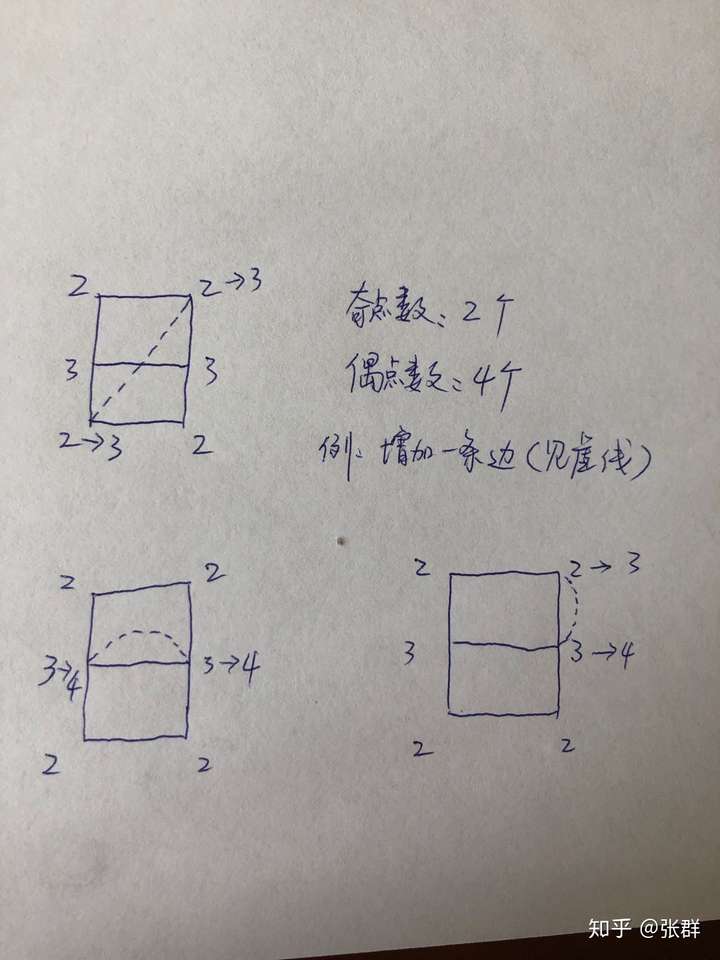 2 2→3
奇点数：2个
3 3
偶点数：4个
2→3 2
例：增加一条边（见虚线）
2 2
2 2→3
3→4 3→4
3 3→4
2 2
2 2
知乎 @张群